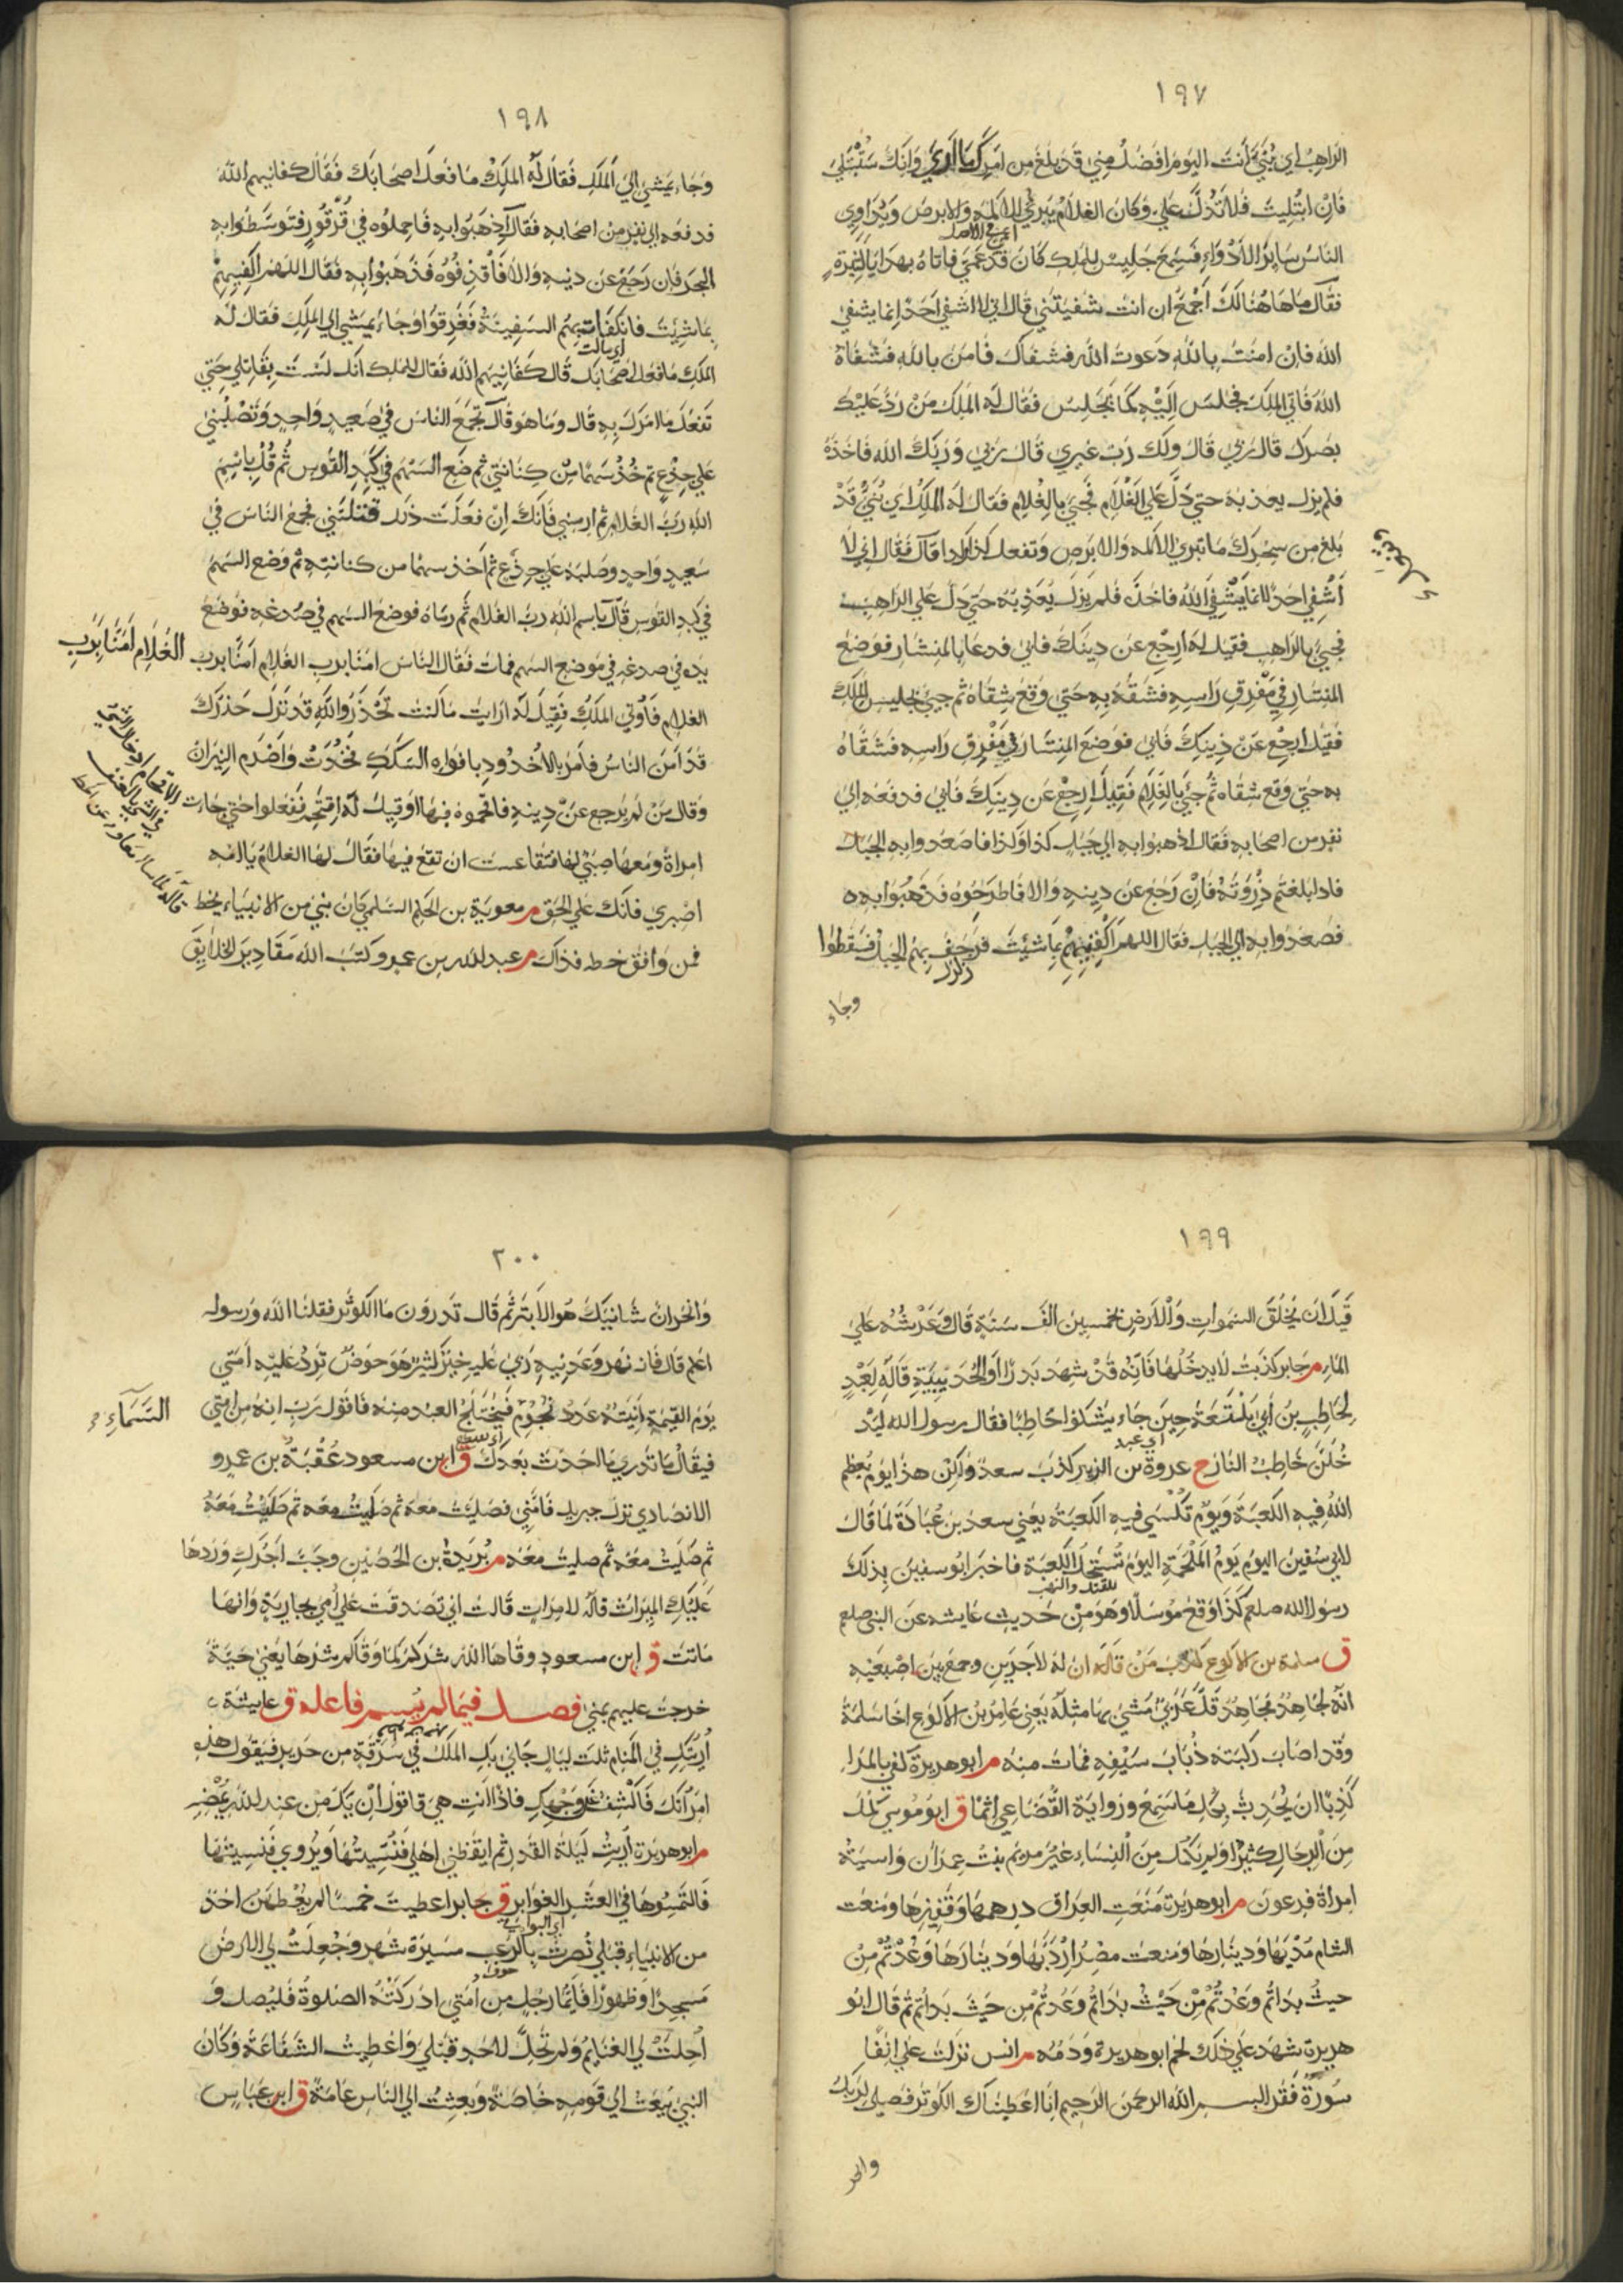 ١٩٧
الراهب اي بني انت اليوم افضل مني قد بلغ من امرك ما اري وانك ستبتلي
فان ابتليت فلا تدل علي وكان الغلام يبرئ الاكمه والابرص ويداوي
الناس ساير الادواء فسمع جليس للملك كان قد عمي فاتاه بهدايا كثيرة
فقال ما هاهنا لك اجمع ان انت شفيتني قال اني لا اشفي احدا انما يشفي
الله فان امنت بالله دعوت الله فشفاك فامن بالله فشفاه
الله فاتي الملك فجلس اليه كما يجلس فقال له الملك من رد عليك
بصرك قال ربي قال ولك رب غيري قال ربي وربك الله فاخذه
فلم يزل يعذبه حتي دل علي الغلام فجيئ بالغلام فقال له الملك اي بني قد
بلغ من سحرك ما تبرئ الاكمه والابرص وتفعل كذا وكذا قال فقال اني لا
اشفي احدا انما يشفي الله فاخذه فلم يزل يعذبه حتي دل علي الراهب
فجيئ بالراهب فقيل له ارجع عن دينك فابي فدعا بالمنشار فوضع
المنشار في مفرق راسه فشقه به حتي وقع شقاه ثم جيئ بجليس الملك
فقيل ارجع عن دينك فابي فوضع المنشار في مفرق راسه فشقاه
به حتي وقع شقاه ثم جيئ بالغلام فقيل ارجع عن دينك فابي فدفعه الي
نفر من اصحابه فقال اذهبوا به الي جبل كذا وكذا فاصعدوا به الجبل
فاذا بلغتم ذروته فان رجع عن دينه والا فاطرحوه فذهبوا به
فصعدوا به الي الجبل فقال اللهم اكفنيهم بما شئت فرجف بهم الجبل فسقطوا
وجاء
١٩٨
وجاء يمشي الي الملك فقال له الملك ما فعل اصحابك فقال كفانيهم الله
فدفعه الي نفر من اصحابه فقال اذهبوا به فاحملوه في قرقور فتوسطوا به
البحر فان رجع عن دينه والا فاقذفوه فذهبوا به فقال اللهم اكفنيهم
بما شئت فانكفات بهم السفينة فغرقوا وجاء يمشي الي الملك فقال له
الملك ما فعل اصحابك قال كفانيهم الله فقال للملك انك لست بقاتلي حتي
تفعل ما امرك به قال وما هو قال تجمع الناس في صعيد واحد وتصلبني
علي جذع ثم خذ سهما من كنانتي ثم ضع السهم في كبد القوس ثم قل باسم
الله رب الغلام ثم ارمني فانك ان فعلت ذلك قتلتني فجمع الناس في
سعيد واحد وصلبه علي جذع ثم اخذ سهما من كنانته ثم وضع السهم
في كبد القوس قال باسم الله رب الغلام ثم رماه فوضع السهم في صدغه فوضع
يده في صدغه في موضع السهم فمات فقال الناس امنا برب الغلام امنا برب
الغلام امنا برب
الغلام فاوتي الملك فقيل له ارايت ما كنت تحذر والله قد نزل حذرك
قد امن الناس فامر بالاخدود بافواه السكك فخدت واضرم النيران
وقال من لم يرجع عن دينه فاقحموه فيها او قيل له اقتحم ففعلوا حتي جاءت
امراة ومعها صبي لها فتقاعست ان تقع فيها فقال لها الغلام يا امه
اصبري فانك علي الحق م معوية بن الحكم السلمي كان نبي من الانبياء يخط
فمن وافق خطه فذاك م عبد الله بن عمرو كتب الله مقادير الخلايق
١٩٩
قبل ان يخلق السموات والارض بخمسين الف سنة قال وعرشه علي
الماء م جابر كذبت لا يدخلها فانه قد شهد بدرا والحديبية قاله لعبد
لحاطب بن ابي بلتعة حين جاء يشكوا حاطبا فقال يرسول الله ليد
خلن حاطب النار خ عروة بن الزبير كذب سعد ولكن هذا يوم يعظم
الله فيه الكعبة ويوم تكسي فيه الكعبة يعني سعد بن عبادة لما قال
لابي سفين اليوم يوم الملحمة اليوم تستحل الكعبة فاخبر ابو سفين بذلك
رسول الله صلعم كذا وقع مرسلا وهو من حديث عايشه عن النبي صلعم
ق سلمة بن الاكوع كذب من قاله ان له لاجرين وجمع بين اصبعيه
انه لجاهد مجاهد قل عربي مشي بها مثله يعني عامر بن الاكوع اخا سلمة
وقد اصاب ركبته ذباب سيفه فمات منه م ابو هريرة كفي بالمرء
كذبا ان يحدث بكل ما سمع ورواية القضاعي اثما ق ابو موسي كمل
من الرجال كثير ولم يكمل من النساء غير مريم بنت عمران واسية
امراة فرعون م ابو هريرة منعت العراق درهمها وقفيزها ومنعت
الشام مديها ودينارها ومنعت مصر اردبها ودينارها وعدتم من
حيث بداتم وعدتم من حيث بداتم وعدتم من حيث بداتم ثم قال ابو
هريرة شهد علي ذلك لحم ابو هريرة ودمه م انس نزلت علي انفا
سورة فقرا بسم الله الرحمن الرحيم انا اعطيناك الكوثر فصل لربك
وانحر
٢٠٠
وانحر ان شانيك هو الابتر ثم قال تدرون ما الكوثر فقلنا الله ورسوله
اعلم قال فانه نهر وعدنيه ربي عليه خير كثير هو حوض ترد عليه امتي
يوم القيمة انيته عدد نجوم فيختلج العبد منهم فاقول رب انه من امتي
السماء
فيقال ما تدري ما احدث بعدك ق ابن مسعود عقبة بن عمرو
الانصاري نزل جبريل فامني فصليت معه ثم صليت معه ثم صليت معه
ثم صليت معه ثم صليت معه م بريدة بن الحصين وجب اجرك وردها
عليك الميراث قاله لامراة قالت اني تصدقت علي امي بجارية وانها
ماتت ق ابن مسعود وقاها الله شركم كما وقاكم شرها يعني حية
خرجت عليهم بمني فصل فيما لم يسم فاعله ق عايشة
اريتك في المنام ثلث ليال جاني بك الملك في سرقة من حرير فيقول هذه
امراتك فاكشف عن وجهك فاذا انت هي فاقول ان يك من عند الله يمضه
م ابو هريرة اريت ليلة القدر ثم ايقظني اهلي فنسيتها ويروي فنسيتها
فالتمسوها في العشر الغوابر ق جابر اعطيت خمسا لم يعطهن احد
من الانبياء قبلي نصرت بالرعب مسيرة شهر وجعلت لي الارض
مسجدا وطهورا فايما رجل من امتي ادركته الصلوة فليصل و
احلت لي الغنايم ولم تحل لاحد قبلي واعطيت الشفاعة وكان
النبي يبعث الي قومه خاصة وبعثت الي الناس عامة ق ابن عباس